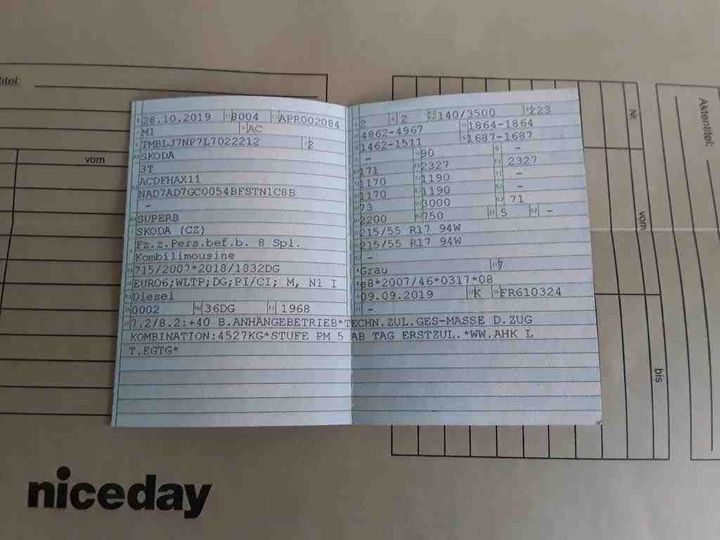 titel:
vom
28.10.2019 8004 APR002084
M1 AC
TMBLJ7NP7L7022212 2
SKODA
3T
ACDFHAX11
NAD7AD7GC0054BFSTN1C8B
-
SUPERB
SKODA (CZ)
Fz.z.Pers.bef.b. 8 Spl.
Kombilimousine
715/2007*2018/1832DG
EURO6;WLTP;DG;PI/CI; M, N1 I
Diesel
0002 36DG 1968
7.2/8.2:+40 B.ANHÄNGEBETRIEB*TECHN.ZUL.GES-MASSE D.ZUG
KOMBINATION:4527KG*STUFE PM 5 AB TAG ERSTZUL.*WW.AHK L
T.EGTG*
2 2 140/3500 223
4862-4967 1864-1864
1462-1511 1687-1687
- 90 -
171 2327 2327
1170 1190 -
1170 1190 -
73 3000 71
2200 750 5 -
215/55 R17 94W
215/55 R17 94W
-
Grau
e8*2007/46*0317*08
09.09.2019 K FR610324
-
Aktentitel:
Nr.
vom
bis
niceday